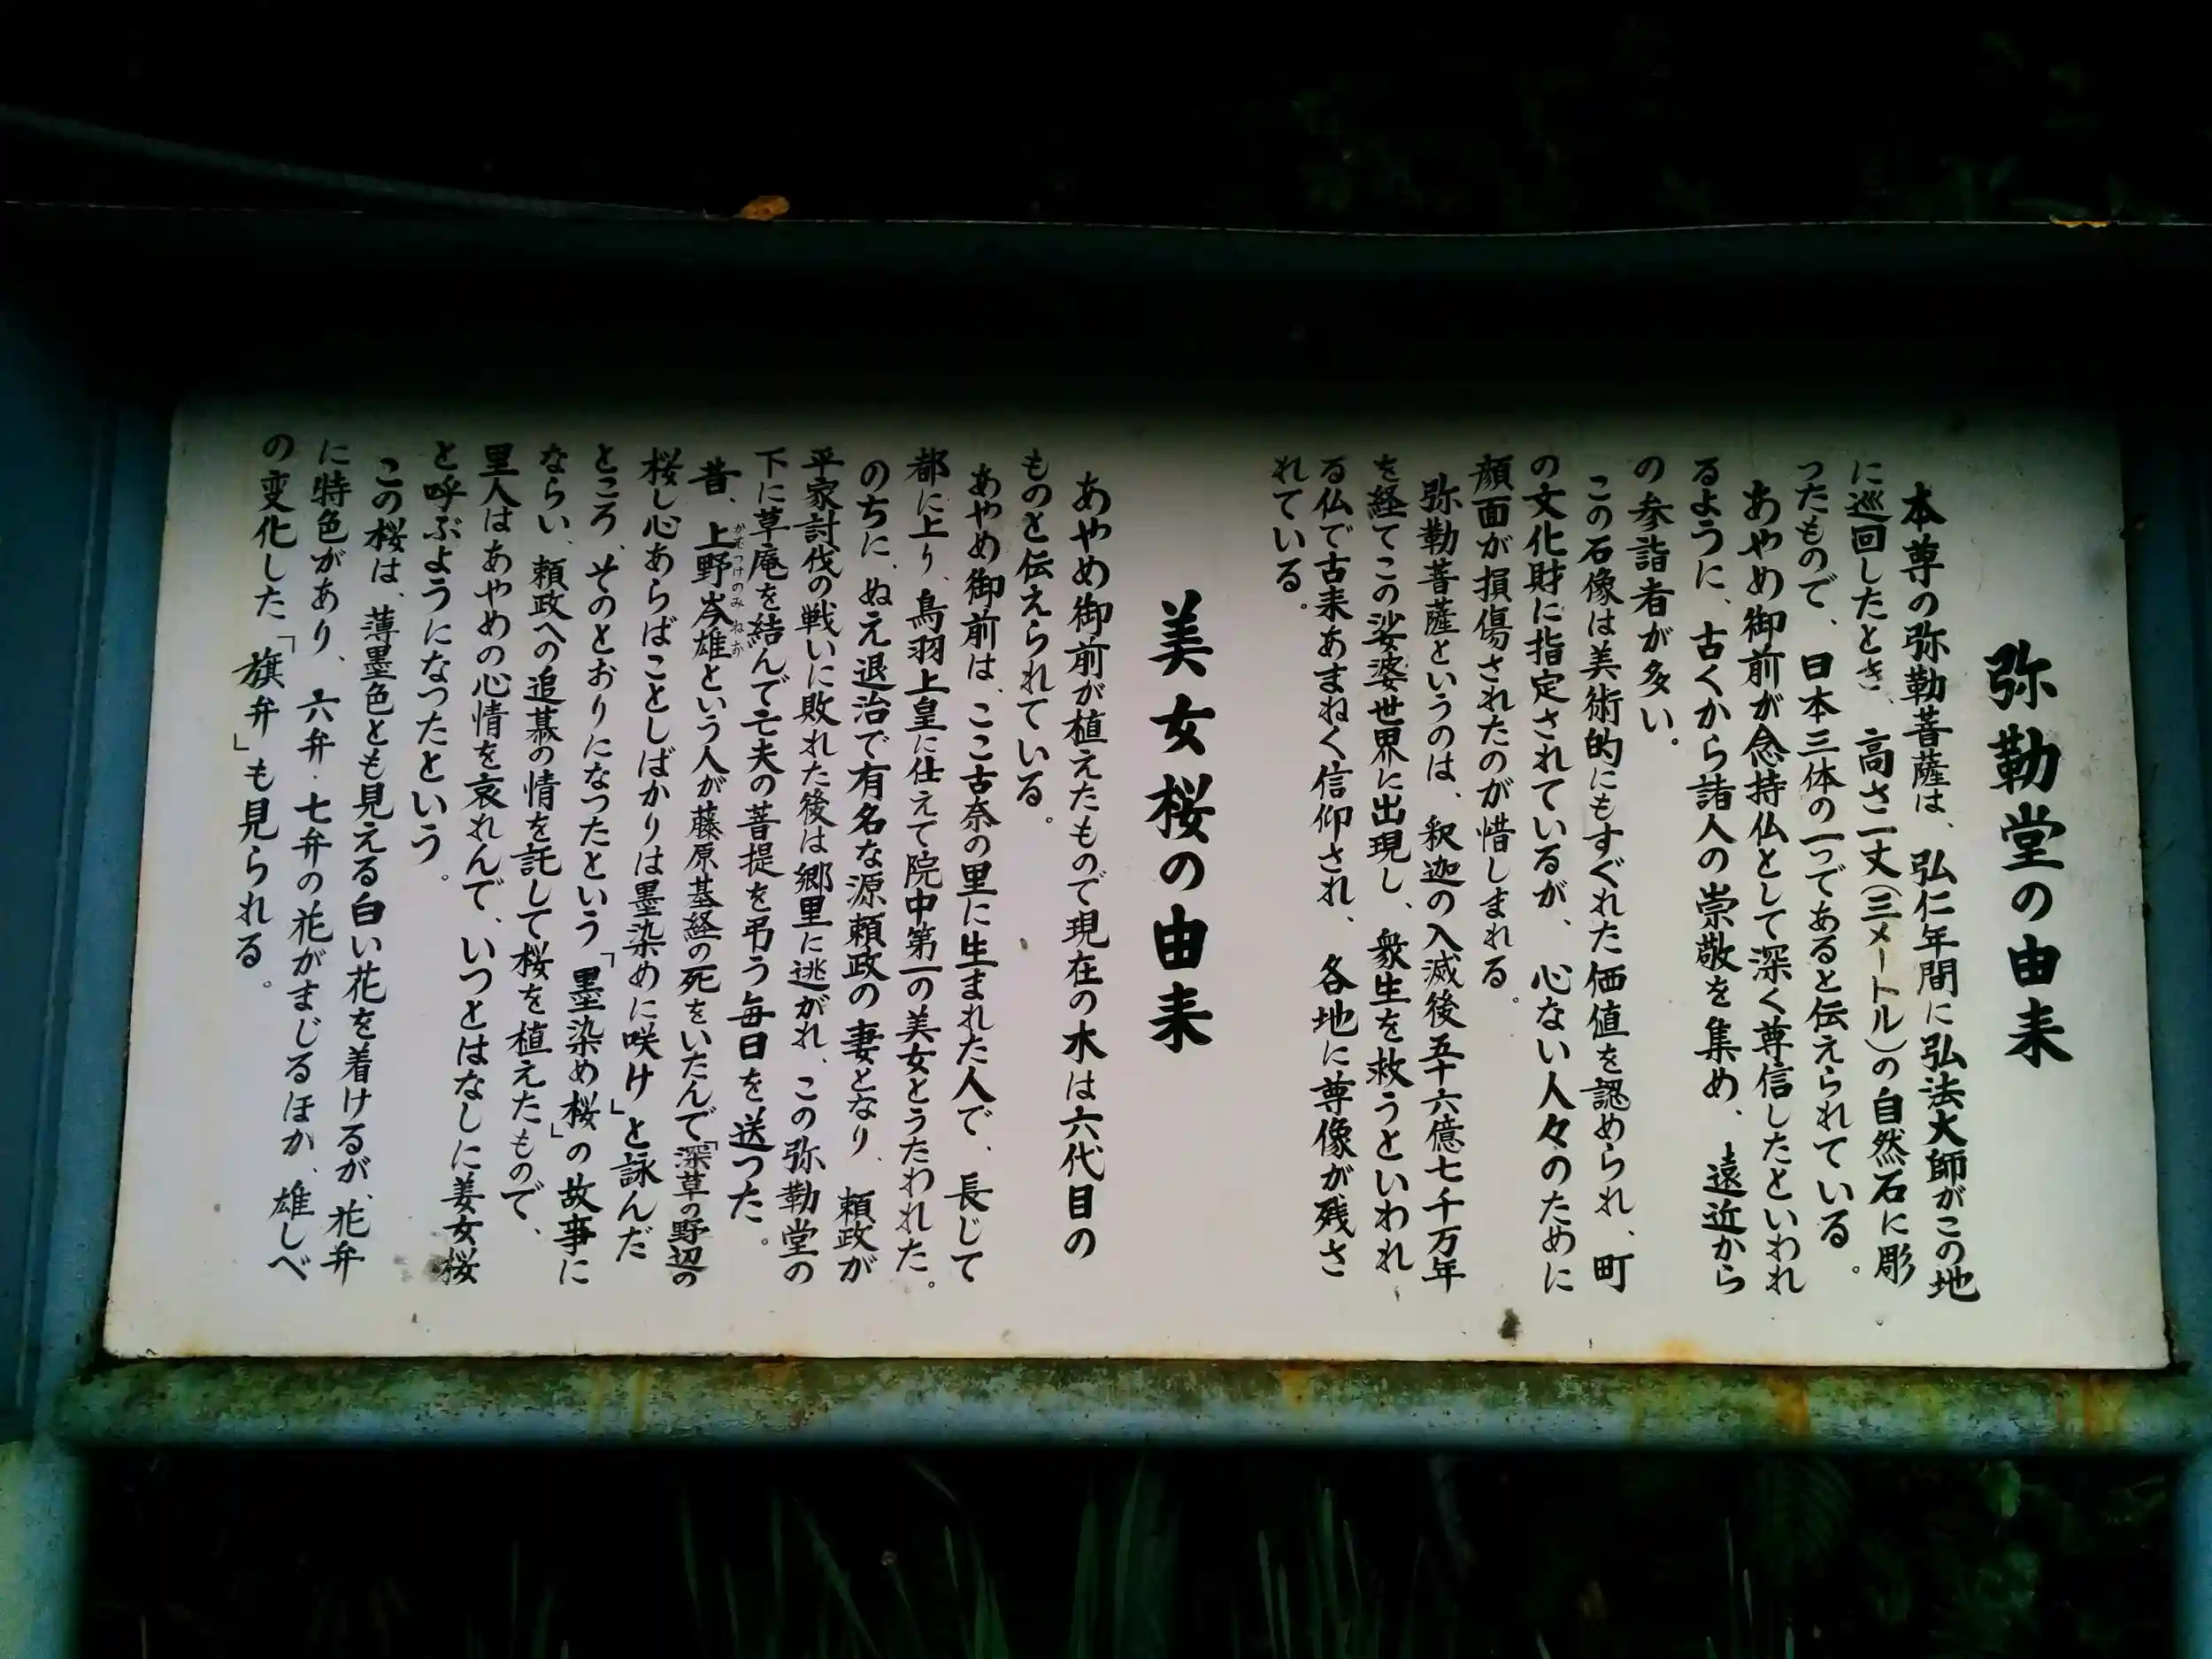 弥勒堂の由来
本尊の弥勒菩薩は、弘仁年間に弘法大師がこの地
に巡回したとき、高さ一丈(三メートル)の自然石に彫
ったもので、日本三体の一つであると伝えられている。
あやめ御前が念持仏として深く尊信したといわれ
るように、古くから諸人の崇敬を集め、遠近から
の参詣者が多い。
この石像は美術的にもすぐれた価値を認められ、町
の文化財に指定されているが、心ない人々のために
顔面が損傷されたのが惜しまれる。
弥勒菩薩というのは、釈迦の入滅後五十六億七千万年
を経てこの娑婆世界に出現し、衆生を救うといわれ
る仏で古来あまねく信仰され、各地に尊像が残さ
れている。
美女桜の由来
あやめ御前が植えたもので現在の木は六代目の
ものと伝えられている。
あやめ御前は、ここ古奈の里に生まれた人で、長じて
都に上り、鳥羽上皇に仕えて院中第一の美女とうたわれた。
のちに、ぬえ退治で有名な源頼政の妻となり、頼政が
平家討伐の戦いに敗れた後は郷里に逃がれ、この弥勒堂の
下に草庵を結んで亡夫の菩提を弔う毎日を送った。
昔、上野岑雄という人が藤原基経の死をいたんで「深草の野辺の
桜し心あらばことしばかりは墨染めに咲け」と詠んだ
ところ、そのとおりになったという「墨染め桜」の故事に
ならい、頼政への追慕の情を託して桜を植えたもので、
里人はあやめの心情を哀れんで、いつとはなしに美女桜
と呼ぶようになったという。
この桜は、薄墨色とも見える白い花を着けるが、花弁
に特色があり、六弁・七弁の花がまじるほか、雄しべ
の変化した「旗弁」も見られる。